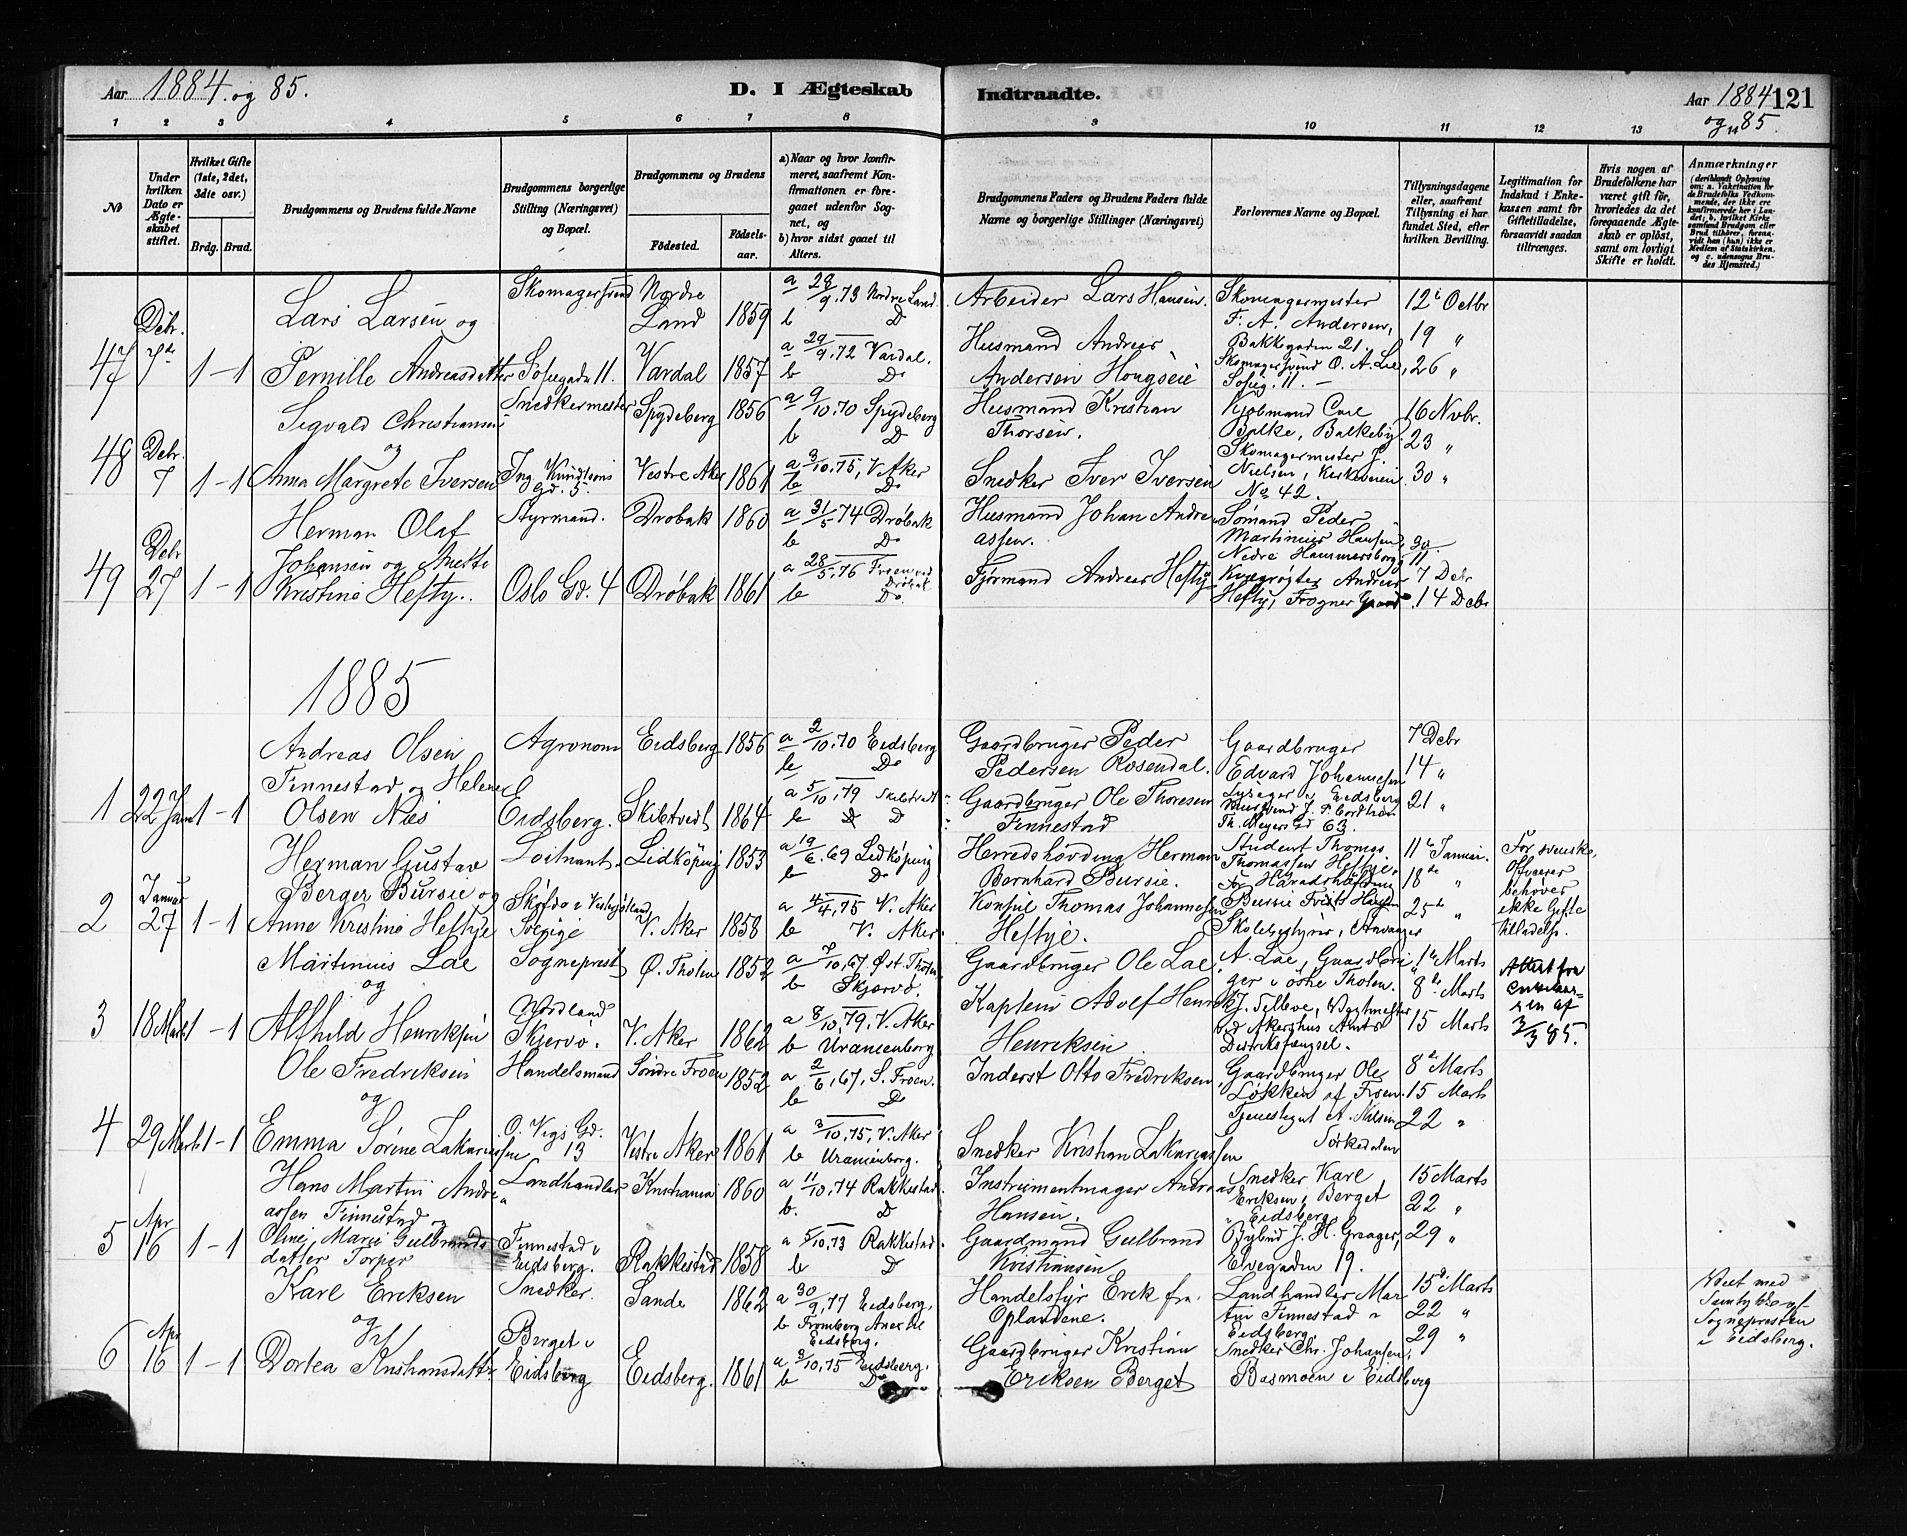 Aar 1884. og 85.
D. I Ægteskab Indtraadte.
Aar 1884 121
og 85.
1 2 3 4 5 6 7 8 9 10 11 12 13
No
Under hvilken Dato er Ægteskabet stiftet.
Hvilket Gifte (1ste, 2det, 3die osv.)
Brdg. Brud.
Brudgommens og Brudens fulde Navne
Brudgommens borgerlige Stilling (Næringsvei) og Bopæl.
Brudgommens og Brudens
Födested. Födselsaar.
a) Naar og hvor konfirmeret, saafremt Konfirmationen er foregaaet udenfor Sognet, og
b) hvor sidst gaaet til Alters.
Brudgommens Faders og Brudens Faders fulde Navne og borgerlige Stillinger (Næringsvei)
Forlovernes Navne og Bopæl.
Tillysningsdagene eller, saafremt Tillysning ei har fundet Sted, efter hvilken Bevilling.
Legitimation for Indskud i Enkekassen samt for Giftetilladelse, forsaavidt saadan tiltrænges.
Hvis nogen af Brudefolkene har været gift för, hvorledes da det foregaaende Ægteskab er oplöst, samt om lovligt Skifte er holdt.
Anmærkninger
47 Debr. 7de 1-1
Lars Larsen og
Skomagersvend Nordre Land 1859
a 28/9.73 Nordre Land
b Do
Arbeider Lars Hansen.
Skomagermester F. A. Andersen, Bakkegaden 21.
12te Octbr
19 "
26 "
Pernille Andreasdatter
Sofiegadn 11. Vardal 1857
a 29/9.72 Vardal.
b Do
Husmand Andreas Andersen
Skomagersvend O. A. Lie, Sofieg. 11.
48 Debr. 7 1-1
Sigvald Christiansen og
Snedkermester Spydeberg 1856
a 9/10.70 Spydeberg
b Do
Husmand Kristian Thorsen.
Kjøbmand Carl Balke, Balkeby
16 Nvbr.
23 "
30 "
Anna Margrete Iversen
Ing. Knudsens Gd. 5. Vestre Aker 1861
a 3/10.75, V. Aker
b Do
Snedker Iver Iversen
Skomagermester J. Nielsen, Kirkeveien No 42.
49 Debr 27 1-1
Herman Olaf Johansen og Mette
Kristine Hefty.
Styrmand. Drøbak 1860
a 31/5 74 Drøbak
b Do
Husmand Johan Andreassen.
Sømand Peder Martinius Hansen, Nedre Hammersborgg 11
30
7 Debr
14 Debr
Oslo Gd. 4 Drøbak 1861
a 28/5.76 Froen ved Drøbak
b Do.
Andreas Hefty
Andreas Hefty, Frogner Gaard.
1885
1 22 Jan 1-1
Andreas Olsen Finnestad og Helene
Olsen Næs
Agronom Eidsberg 1856
a 2/10.70 Eidsberg
b Do
Gaardbruger Peder Pedersen Rosendal.
Gaardbruger Edvard Johannesen Eidsberg
7 Debr
14 "
21 "
Eidsberg. Skibtvedt 1864
a 5/10.79 Skibtvedt
b Do
Gaardbruger Ole Thoresen Finnestad
Th. Meyers Gd 63.
2 Januar 27 1-1
Herman Gustav Berger Bursie og
Anne Kristine Heftye
Løitnant. Lidköping 1853
a 19/6.69 Lidköping
b Do
Herredshövding Herman Bernhard Bursie.
Student Thomas Thomassen Heftye.
11te Januar.
18de "
25de "
For svenske Officerer behøves ikke Gifte tilladelse.
Sverige V. Aker 1858
a 4/4.75 V. Aker
b V. Aker.
Konsul Thomas Johannesen Heftye.
Skolebestyrer,
3 18 Marts 1-1
Martinius Lae
og
Alfhild Henriksen
Sogneprest Ø. Thoten 1852
a 7/10.67 Øst. Thoten
b Skjærvö.
Gaardbruger Ole Lae,
A. Lae, Gaardbruger i østre Thoten.
1te Marts
8de Marts
15 Marts
Attest fra Enkekassen af 3/3 85.
Nordland Skjervö. V. Aker 1862
a 8/10.79, V. Aker
b Uranienborg
Kaptein Adolf Henrik Henriksen
ved Akershus Amts Distriksfængsel.
4 29 Marts 1-1
Ole Fredriksen
og
Emma Sørine Zakariassen
Handelsmand Söndre Froen 1852
a 2/6.67, S. Froen.
b Do
Inderst Otto Fredriksen
Gaardbruger Ole Løkken af Froen.
8de Marts
15 Marts
22 "
O. Vogts Gd. 13 Vestre Aker 1861
a 3/10.75, V. Aker
b Uranienborg.
Snedker Kristian Zakariassen
Tjenestegut A. Nilsen Sørkedalen
5 Apr 16 1-1
Hans Martin Andreassen Finnestad og
Oline Marie Gulbrandsdatter Torper
Landhandler Kristiania 1860
a 11/10.74 Rakkestad.
b. Do
Instrumentmager Andreas Hansen.
Snedker Karl Eriksen, Berget i Eidsberg
15 Marts
22 "
29 "
Finnestad i Eidsberg. Rakkestad 1858
a 5/10.73 Rakkestad.
b Do
Gaardmand Gulbrand Kristiansen
Bybud J. H. Graager, Elvegaden 19.
6 Apr 16 1-1
Karl Eriksen
og
Dortea Kristiansdatter
Snedker. Sande 1862
a 30/9.77 Eidsberg.
b Eidsberg.
Handelsfyr Erik fra Oplandene.
Landhandler Martin Finnestad i Eidsberg.
15de Marts
22 "
29 "
Viet med Samtykke af Sognepresten i Eidsberg.
Berget i Eidsberg Eidsberg. 1861
a 3/10.75 Eidsberg.
b Do
Gaardbruger Kristian Eriksen Berget
Snedker Chr. Johansen, Basmoen i Eidsberg